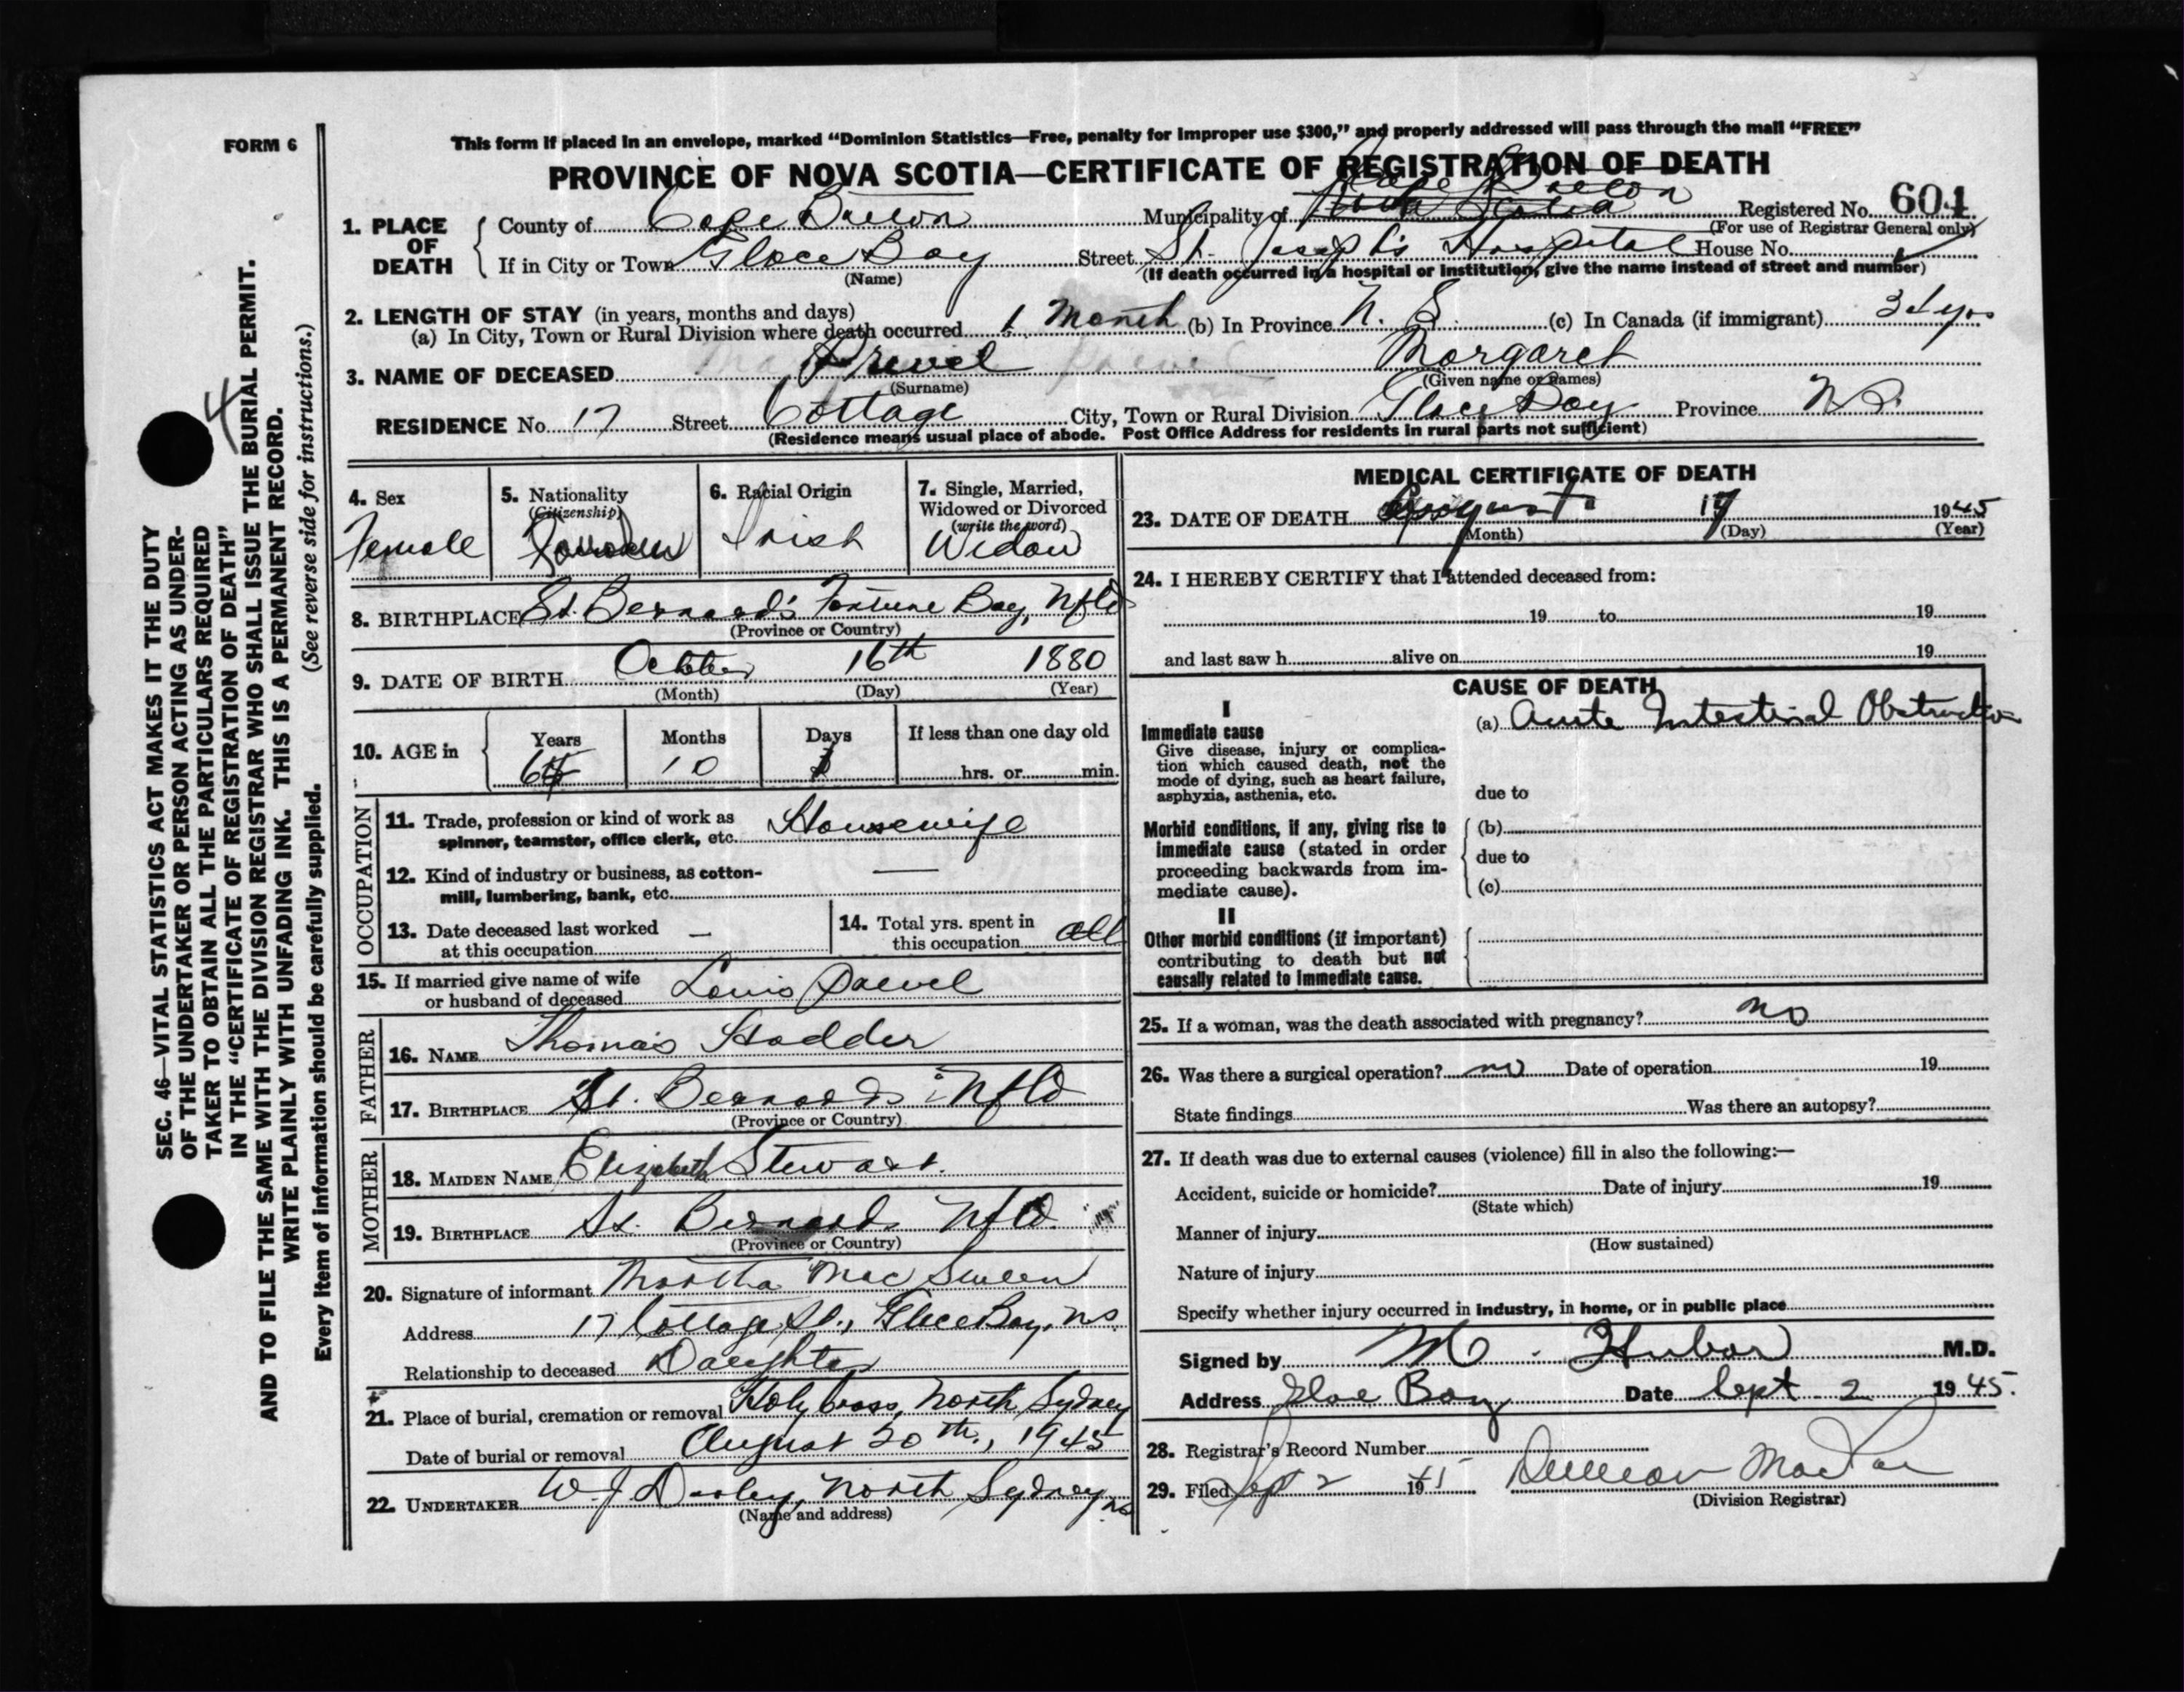 FORM 6
This form if placed in an envelope, marked “Dominion Statistics—Free, penalty for improper use $300,” and properly addressed will pass through the mail “FREE”
PROVINCE OF NOVA SCOTIA—CERTIFICATE OF REGISTRATION OF DEATH
1. PLACE OF DEATH
County of Cape Breton Municipality of Cape Breton Registered No. 604
(For use of Registrar General only)
If in City or Town Glace Bay Street St. Joseph's Hospital House No.
(Name) (If death occurred in a hospital or institution, give the name instead of street and number)
2. LENGTH OF STAY (in years, months and days)
(a) In City, Town or Rural Division where death occurred 1 Month (b) In Province N. S. (c) In Canada (if immigrant) yrs
3. NAME OF DECEASED Margaret
(Surname) (Given name or names)
RESIDENCE No. 17 Street Cottage City, Town or Rural Division Glace Bay Province N.S.
(Residence means usual place of abode. Post Office Address for residents in rural parts not sufficient)
4. Sex
Female
5. Nationality
(Citizenship)
6. Racial Origin
Irish
7. Single, Married,
Widowed or Divorced
(write the word)
Widow
8. BIRTHPLACE St. Bernard's Fortune Bay, Nfld
(Province or Country)
9. DATE OF BIRTH October 16th 1880
(Month) (Day) (Year)
10. AGE in
Years Months Days If less than one day old
64 10 hrs. or min.
OCCUPATION
11. Trade, profession or kind of work as
spinner, teamster, office clerk, etc. Housewife
12. Kind of industry or business, as cotton-
mill, lumbering, bank, etc. —
13. Date deceased last worked
at this occupation —
14. Total yrs. spent in
this occupation all
15. If married give name of wife
or husband of deceased Louis
FATHER
16. NAME Thomas Hodder
17. BIRTHPLACE St. Bernards Nfld
(Province or Country)
MOTHER
18. MAIDEN NAME Elizabeth Stewart.
19. BIRTHPLACE St. Bernards Nfld
(Province or Country)
20. Signature of informant Martha MacSween
Address 17 Cottage St., Glace Bay, N.S.
Relationship to deceased Daughter
21. Place of burial, cremation or removal Holy Cross, North Sydney
Date of burial or removal August 20th., 1945
22. UNDERTAKER W. J. Dooley, North Sydney NS
(Name and address)
MEDICAL CERTIFICATE OF DEATH
23. DATE OF DEATH August 1945
(Month) (Day) (Year)
24. I HEREBY CERTIFY that I attended deceased from:
19 to 19
and last saw h alive on 19
CAUSE OF DEATH
I
Immediate cause
Give disease, injury or complica-
tion which caused death, not the
mode of dying, such as heart failure,
asphyxia, asthenia, etc.
(a) Acute Intestinal Obstruction
due to
Morbid conditions, if any, giving rise to
immediate cause (stated in order
proceeding backwards from im-
mediate cause).
(b)
due to
(c)
II
Other morbid conditions (if important)
contributing to death but not
causally related to immediate cause.
25. If a woman, was the death associated with pregnancy? no
26. Was there a surgical operation? no Date of operation 19
State findings Was there an autopsy?
27. If death was due to external causes (violence) fill in also the following:—
Accident, suicide or homicide? Date of injury 19
(State which)
Manner of injury
(How sustained)
Nature of injury
Specify whether injury occurred in industry, in home, or in public place
Signed by M. M.D.
Address Glace Bay Date Sept 2 1945.
28. Registrar's Record Number
29. Filed Sept 2 1945
(Division Registrar)
SEC. 46—VITAL STATISTICS ACT MAKES IT THE DUTY
OF THE UNDERTAKER OR PERSON ACTING AS UNDER-
TAKER TO OBTAIN ALL THE PARTICULARS REQUIRED
IN THE “CERTIFICATE OF REGISTRATION OF DEATH”
AND TO FILE THE SAME WITH THE DIVISION REGISTRAR WHO SHALL ISSUE THE BURIAL PERMIT.
WRITE PLAINLY WITH UNFADING INK. THIS IS A PERMANENT RECORD.
Every item of information should be carefully supplied. (See reverse side for instructions.)
4